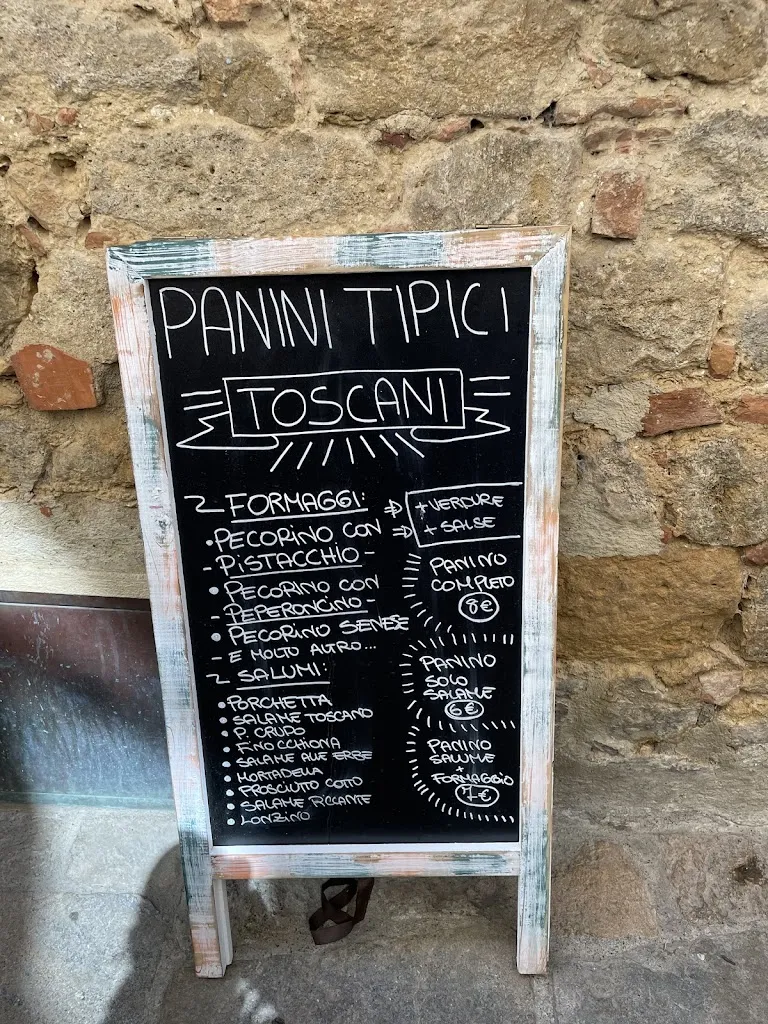 PANINI TIPICI
TOSCANI
FORMAGGI:
• PECORINO CON
- PISTACCHIO -
• PECORINO CON
- PEPERONCINO -
• PECORINO SENESE
- E MOLTO ALTRO...
SALUMI:
• PORCHETTA
• SALAME TOSCANO
• P. CRUDO
• FINOCCHIONA
• SALAME ALLE ERBE
• MORTADELLA
• PROSCIUTTO COTTO
• SALAME PICCANTE
• LONZINO
+ VERDURE
+ SALSE
PANINO
COMPLETO
8€
PANINO
SOLO
SALAME
6€
PANINO
SALUME
+
FORMAGGIO
7€